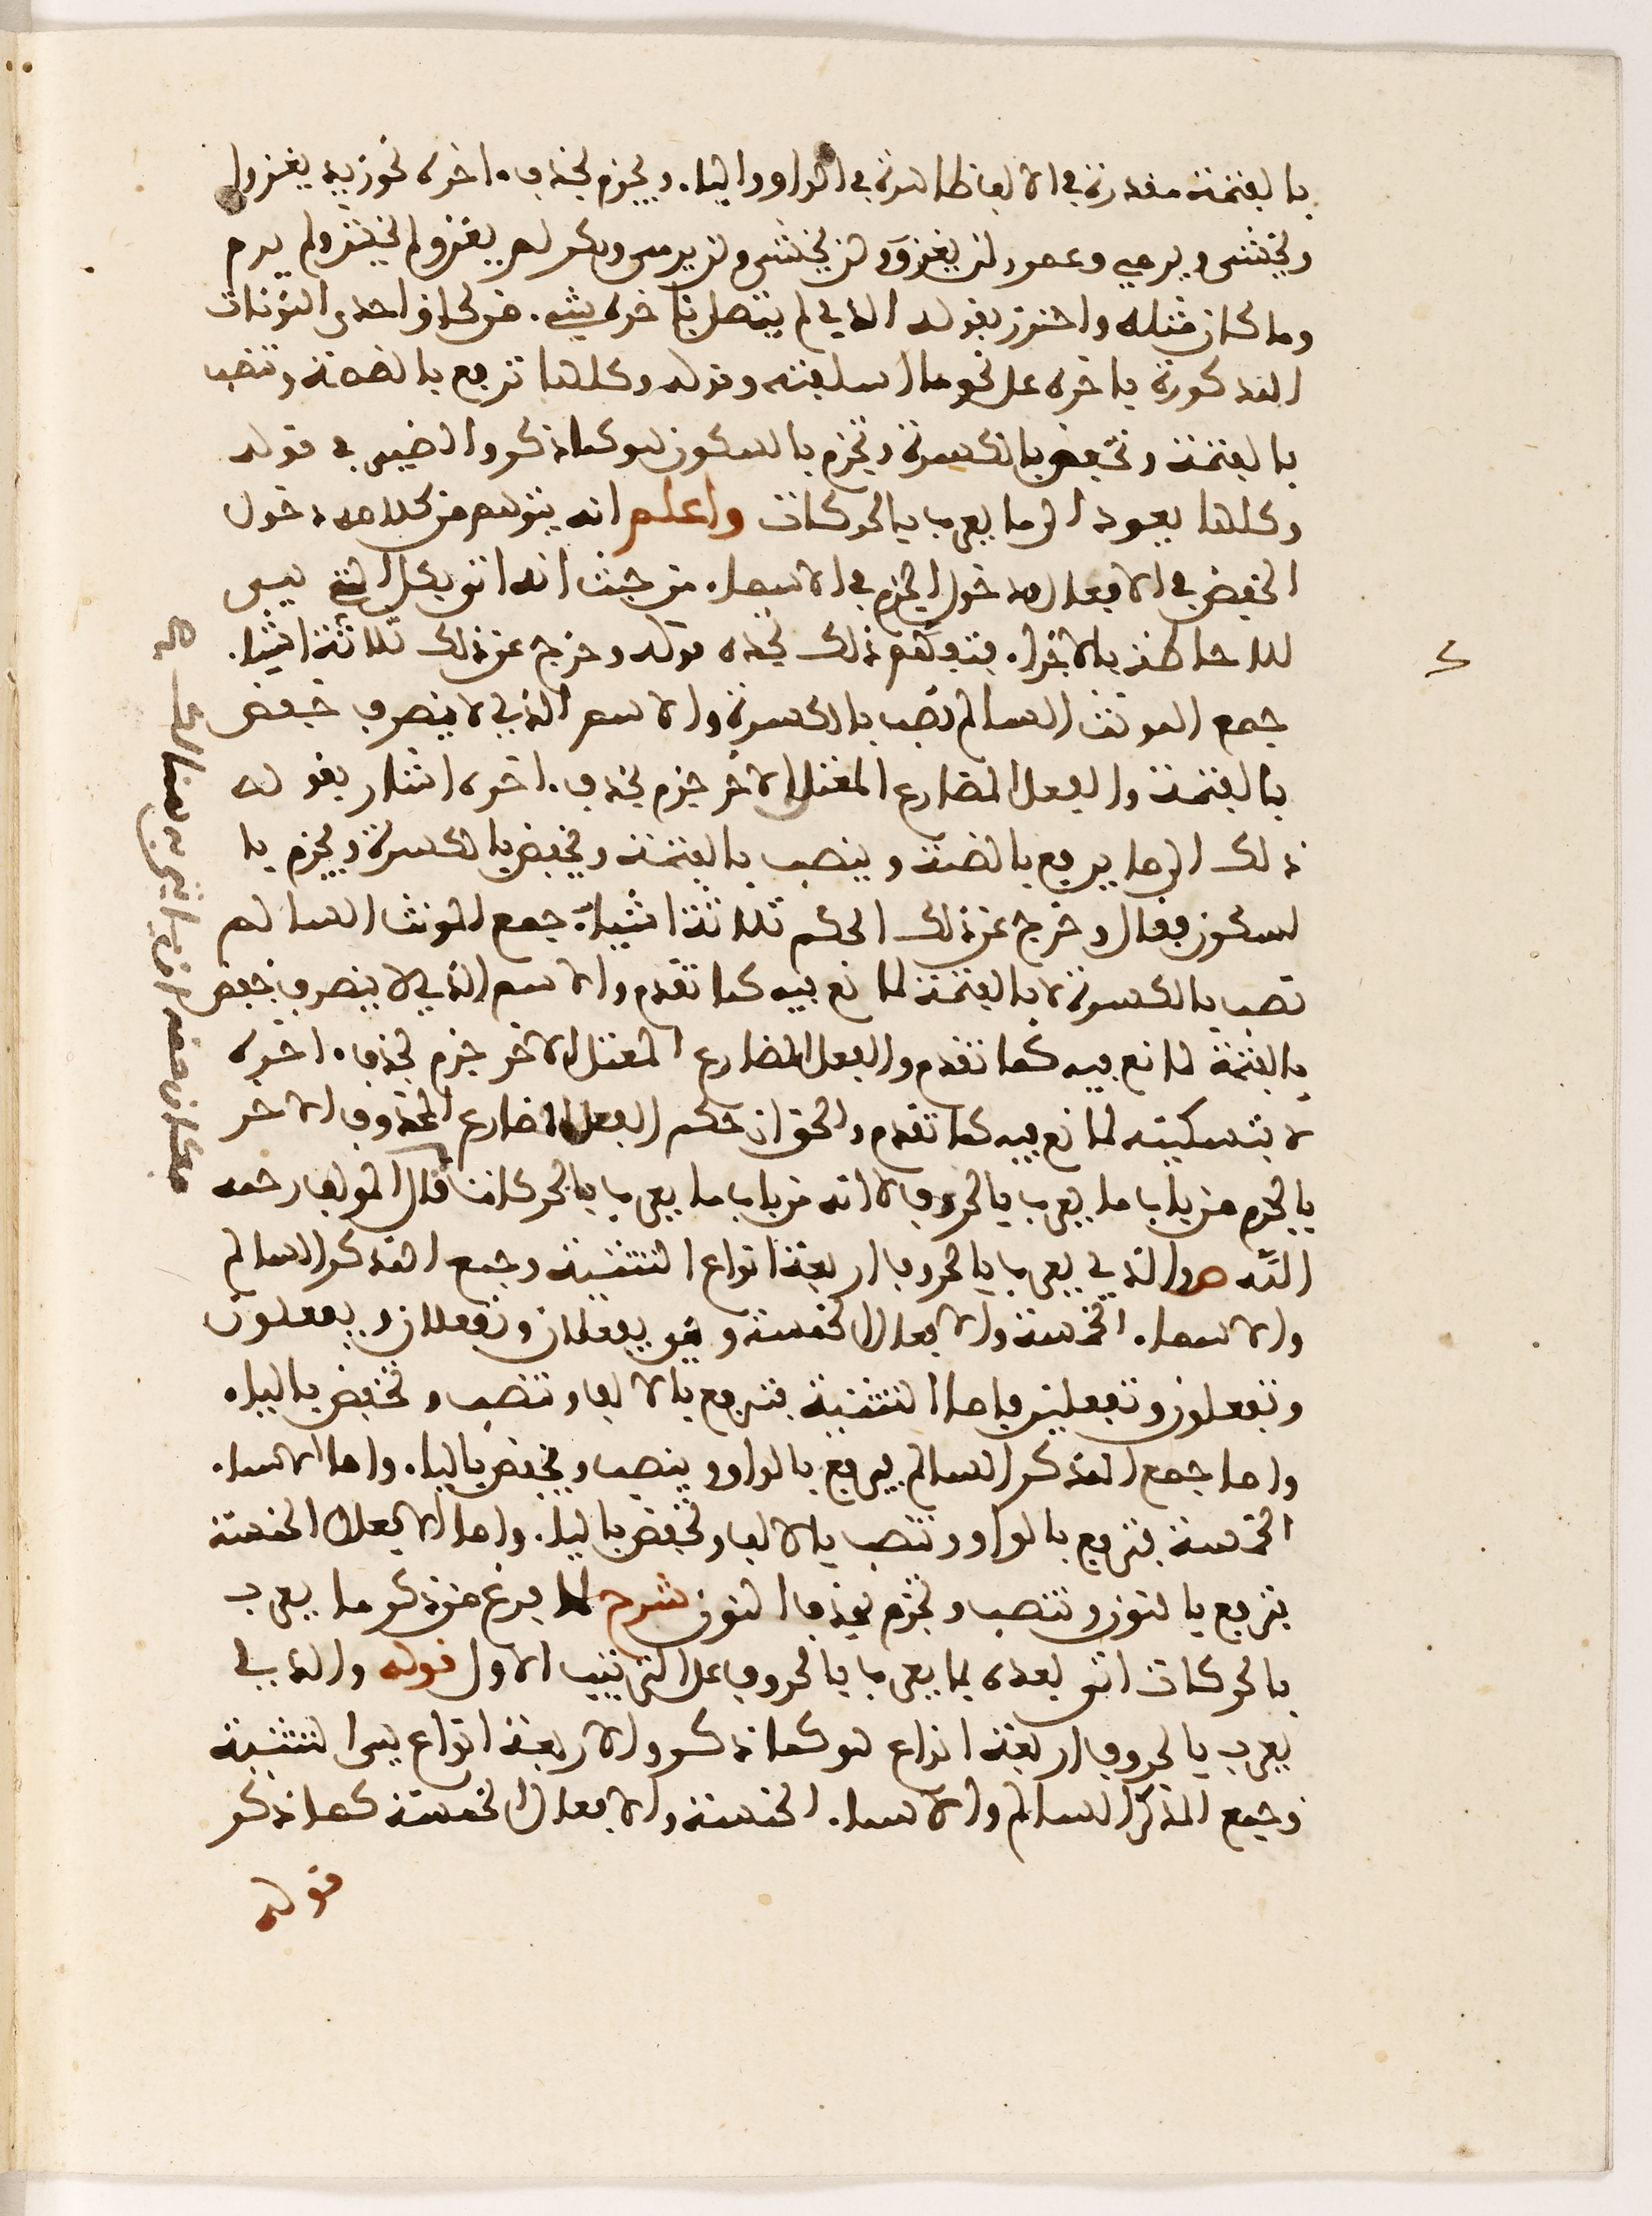 بالفتحة مقدرة في الالف ظاهرة في الواو والياء ويجزم بحذف ءاخره نحو زيد يغزوا
ويخشى ويرمي وعمرو لن يغزو ولن يخشى ولن يرمي وبكر لم يغز ولم يخش ولم يرم
وما كان مثله واحترز بقوله الذي لم يتصل بئاخره شيء من لحاق احدى النونات
المذكورة بئاخره على نحو ما اسلفته وقوله وكلها ترفع بالضمة وتنصب
بالفتحة وتخفض بالكسرة وتجزم بالسكون هو كما ذكر والضمير في قوله
وكلها يعود الى ما يعرب بالحركات واعلم انه يتوهم من كلامه دخول
الخفض في الافعال ودخول الجزم في الاسماء من حيث انه اتى بكل التي هي
للاحاطة بالاجزاء فتوهم ذلك بحده قوله وخرج عن ذلك ثلاثة اشياء
جمع المونث السالم نصب بالكسرة والاسم الذي لا ينصرف خفض
بالفتحة والفعل المضارع المعتل الاخر جزم بحذف ءاخره اشار بقوله
ذلك الى ما يرفع بالضمة وينصب بالفتحة ويخفض بالكسرة ويجزم با
لسكون فقال وخرج عن ذلك الحكم ثلاثة اشياء جمع المونث السالم
نصب بالكسرة لا بالفتحة لمانع فيه كما تقدم والاسم الذي لا ينصرف خفض
بالفتحة لمانع فيه كما تقدم والفعل المضارع المعتل الاخر جزم بحذف ءاخره
لا بتسكينه لمانع فيه كما تقدم والحق ان حكم الفعل المضارع المحذوف الاخر
بالجزم من باب ما يعرب بالحروف لا انه من باب ما يعرب بالحركات قال المولف رحمه
الله ص والذي يعرب بالحروف اربعة انواع التثنية وجمع المذكر السالم
والاسماء الخمسة والافعال الخمسة وهي يفعلان وتفعلان ويفعلون
وتفعلون وتفعلين فاما التثنية فترفع بالالف وتنصب وتخفض بالياء
واما جمع المذكر السالم فيرفع بالواو وينصب ويخفض بالياء واما الاسماء
الخمسة فترفع بالواو وتنصب بالالف وتخفض بالياء واما الافعال الخمسة
فترفع بالنون وتنصب وتجزم بحذف النون شرح لما فرغ من ذكر ما يعرب
بالحركات اتى بعده بما يعرب بالحروف على الترتيب الاول قوله والذي
يعرب بالحروف اربعة انواع هو كما ذكر والاربعة انواع هي التثنية
وجمع المذكر السالم والاسماء الخمسة والافعال الخمسة كما ذكر
قوله
فكان حقه ان ياتي بها